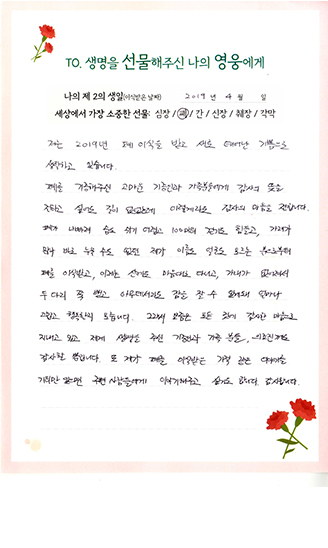 TO. 생명을 선물해주신 나의 영웅에게
나의 제 2의 생일(이식받은 날짜) 2019 년 4 월 일
세상에서 가장 소중한 선물: 심장 / 폐 / 간 / 신장 / 췌장 / 각막
저는 2019년 폐 이식을 받고 새로 태어난 기쁨으로
생활하고 있습니다.
폐를 기증해주신 고마운 기증인과 가족분들에게 감사의 뜻을
전하고 싶어도 길이 없었는데 이렇게라도 감사의 마음을 전합니다.
제가 나빠져 숨도 쉬기 어렵고 100미터 걷기도 힘들고, 가래가
바로 누울 수도 없던 제가 이름도 얼굴도 모르는 분으로부터
폐를 이식받고, 이제는 산에도 마음대로 다니고, 가래가 없어져서
두 다리 쭉 뻗고 아무데서라도 잠을 잘 수 있게돼 얼마나
고맙고 행복한지 모릅니다. 그래서 요즘은 모든 것에 감사한 마음으로
지내고 있고 제게 생명을 주신 기증자와 가족 분들, 의료진께도
감사할 뿐입니다. 또 제가 폐를 이식받는 가정 같은
주변 사람들에게 이야기해주고 싶기도 합니다. 감사합니다.